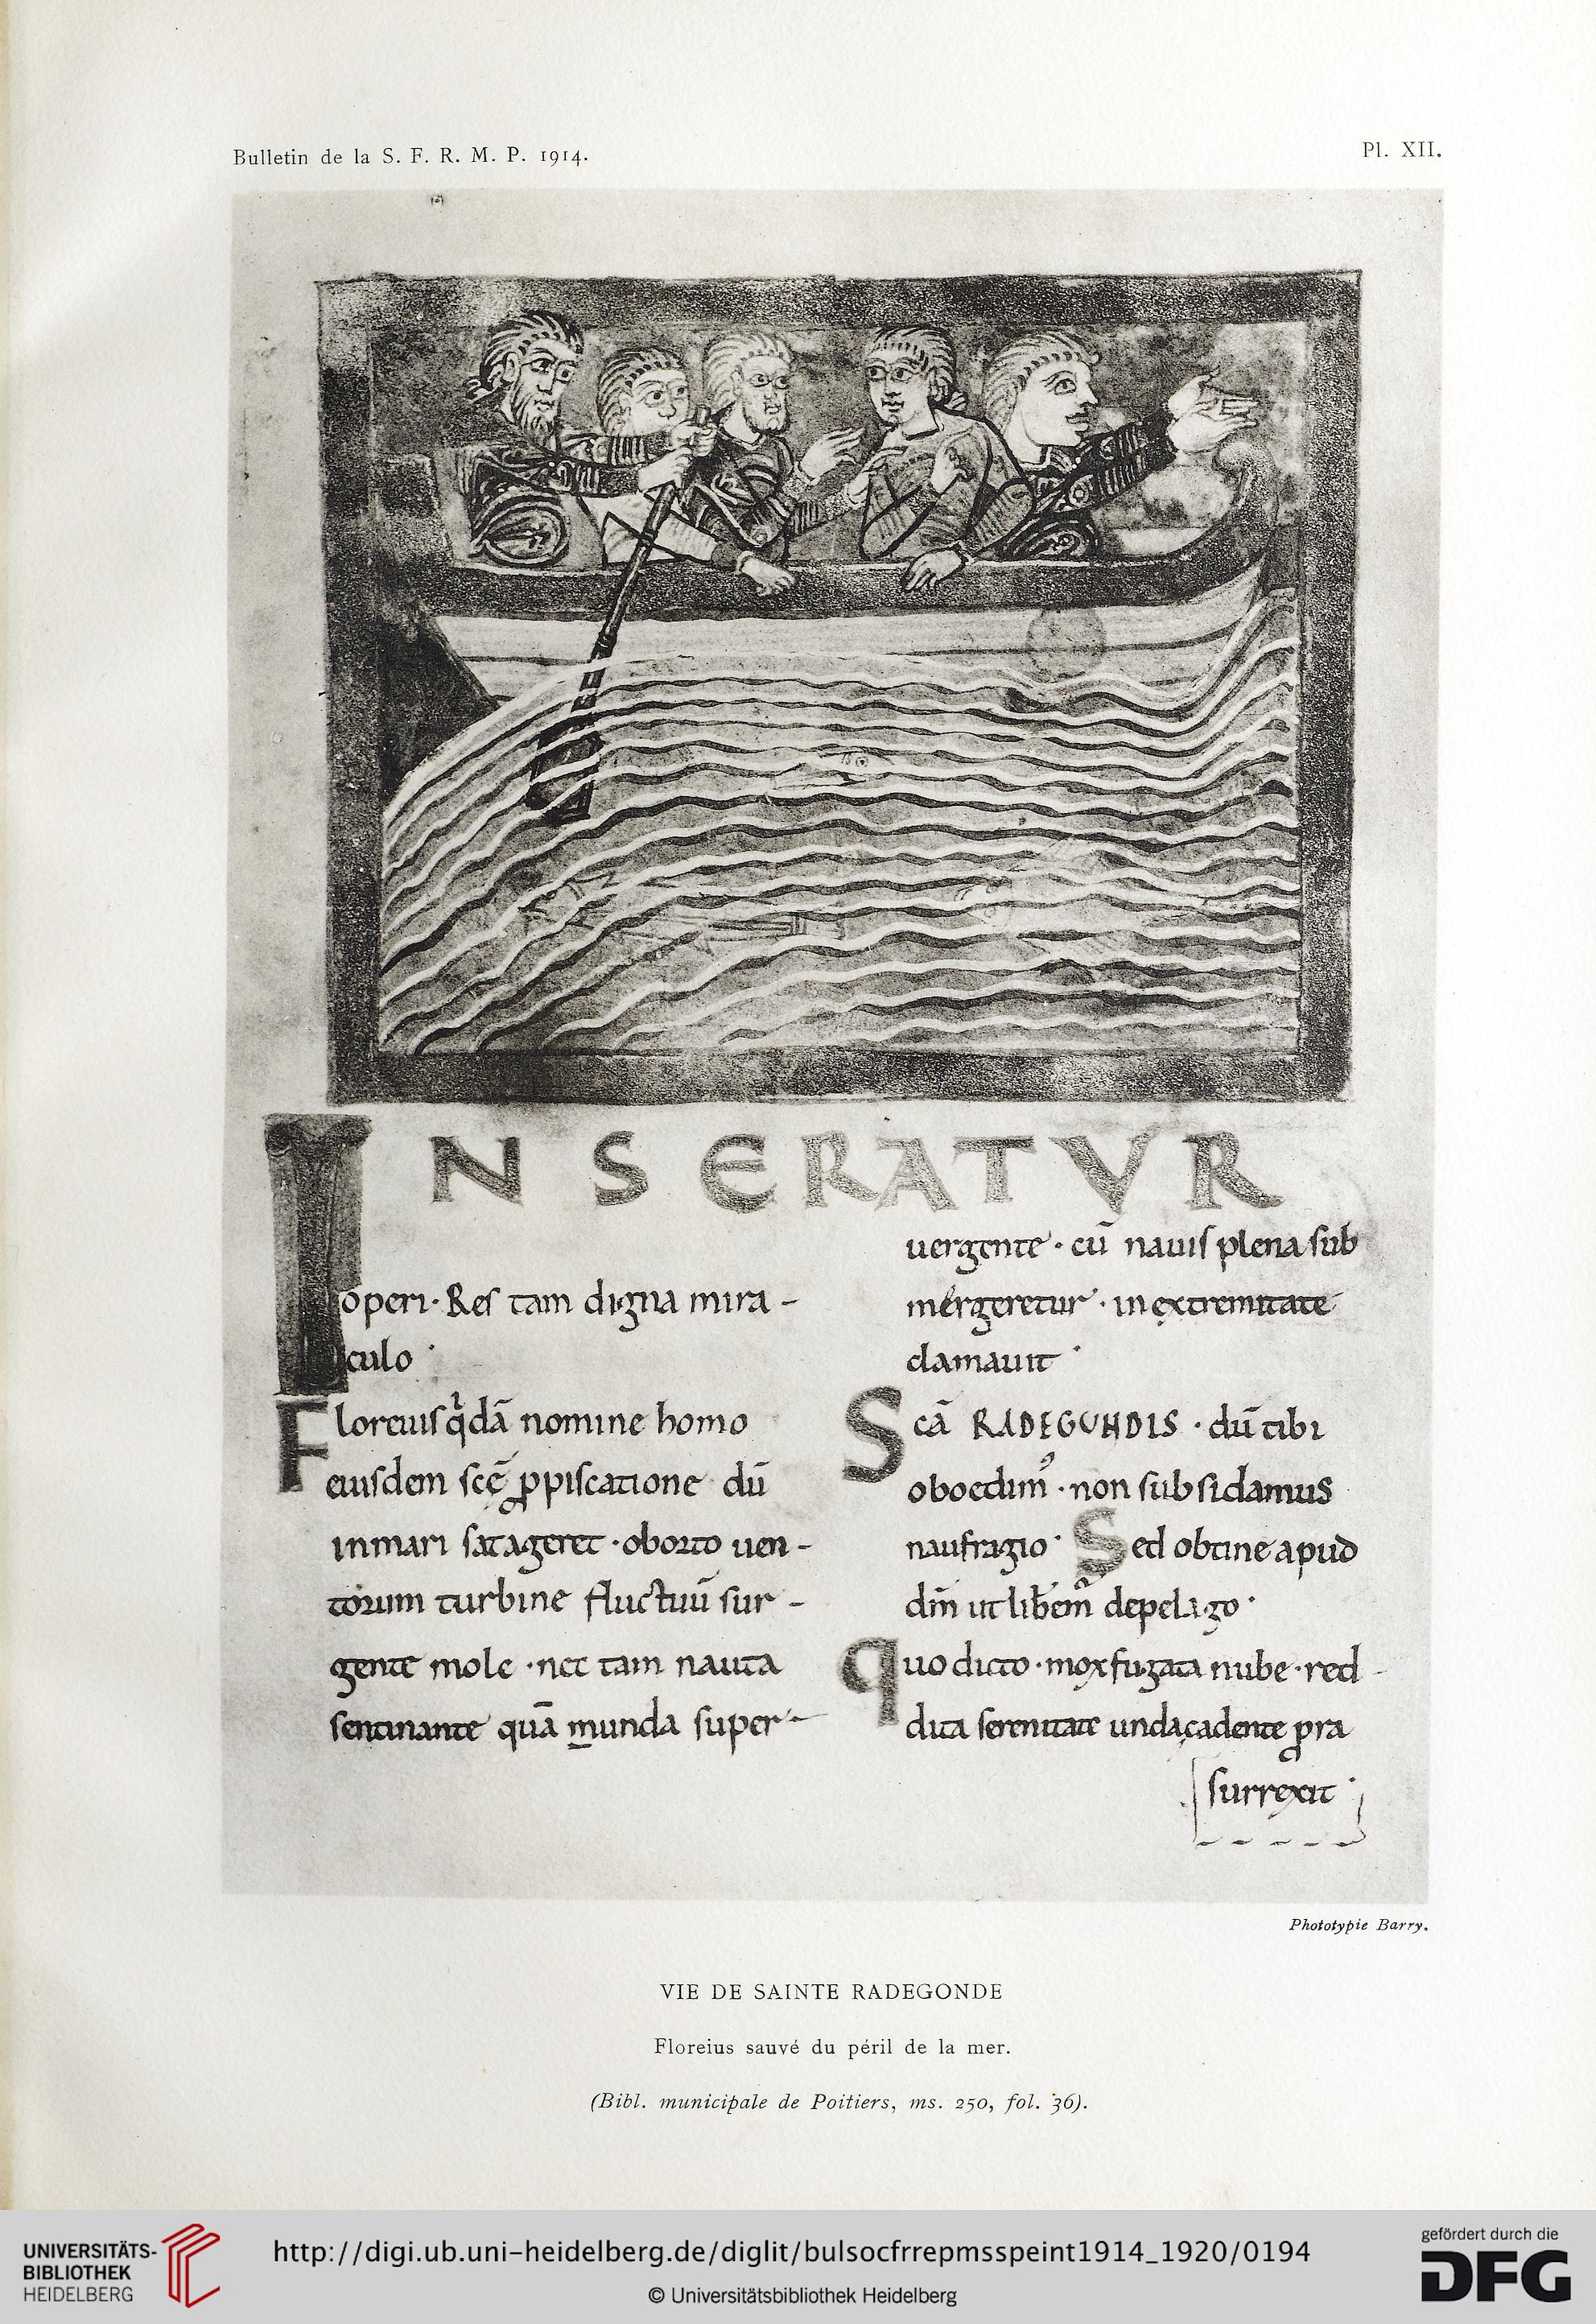 Bulletin de la S. F. R. M. P. 1914.
Pl. XII.
INSERATVR
operi· Res tam digna mira-
culo·
Floreiuſ q̇dā nomine homo
eiuſdem ſcę̄ ꝓ piſcatione dū
inmari ſatageret· oborto uen-
torum turbine fluctuū ſur-
gente mole· nec tam nauta
ſentinante quā munda super-
uergente· cū nauiſ plena ſub
mergeretur· in extremitate
clamauit·
Scā RADEGUNDIS· dū tibi
oboedimꝰ· non ſubſidamus
naufragio· Sed obtine apud
dm̄ ut liberem depelago·
quo dicto· mox fugata nube· red-
dita ſerenitate unda cadente ꝓra
ſurrexit·
Phototypie Barry.
VIE DE SAINTE RADEGONDE
Floreius sauvé du péril de la mer.
(Bibl. municipale de Poitiers, ms. 250, fol. 36).
UNIVERSITÄTS-
BIBLIOTHEK
HEIDELBERG
http://digi.ub.uni-heidelberg.de/diglit/bulsocfrrepmsspeint1914_1920/0194
© Universitätsbibliothek Heidelberg
gefördert durch die
DFG